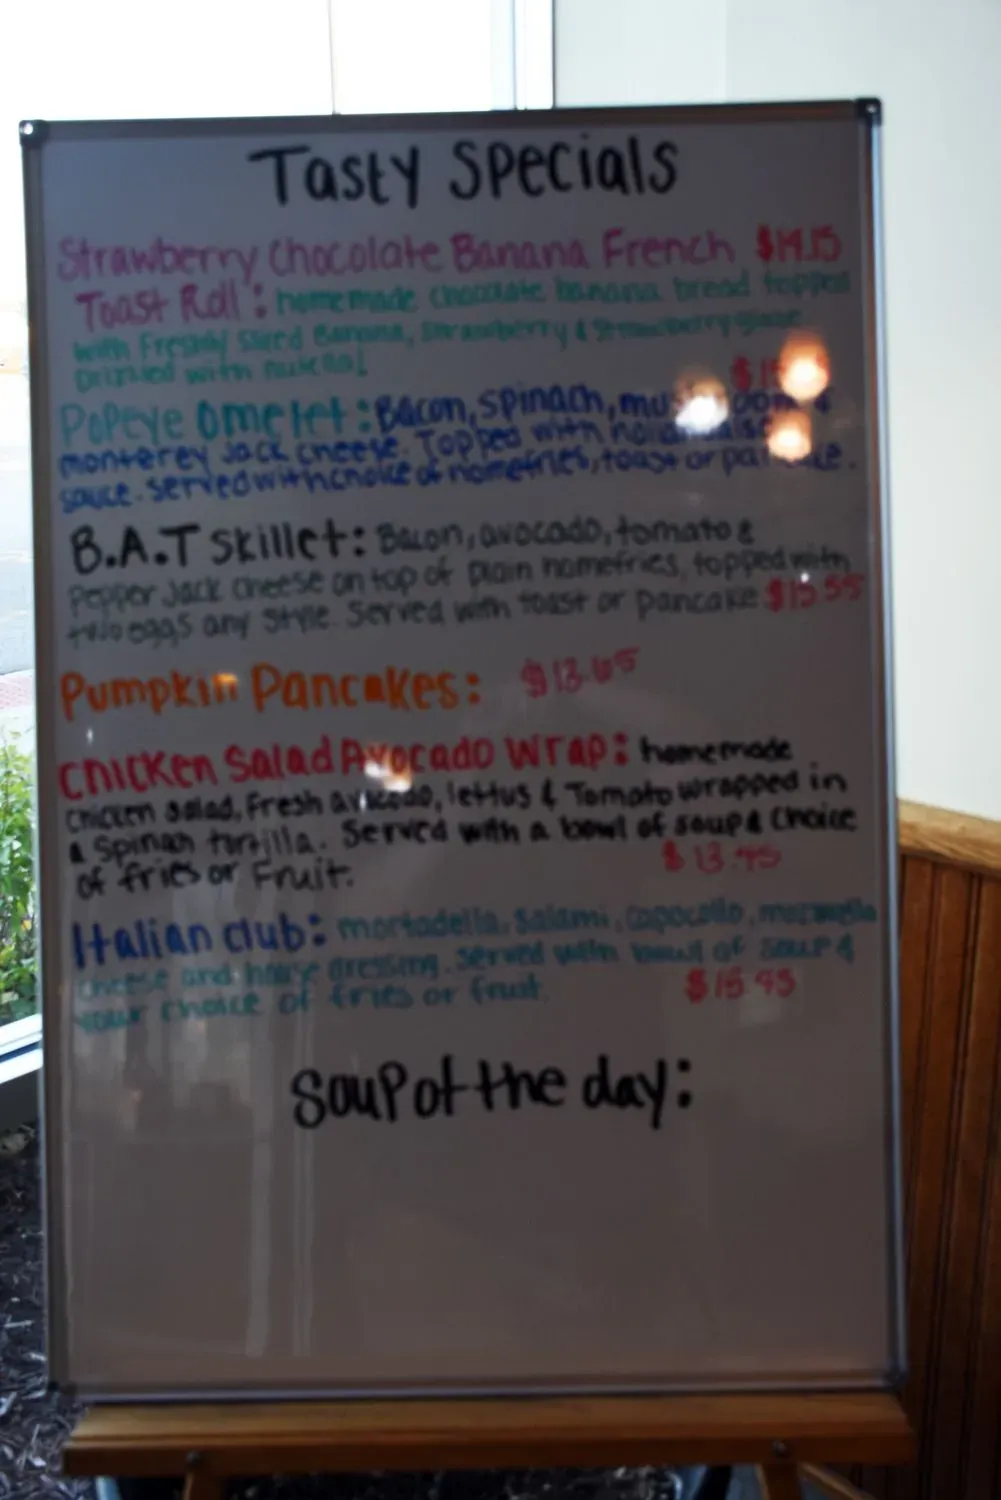 Tasty Specials
Strawberry Chocolate Banana French $14.15
Toast Roll: homemade chocolate banana bread topped
with Freshly sliced Banana, strawberry & strawberry glaze
Drizzled with nutella!
Popeye Omelet: Bacon, spinach,
monterey Jack cheese. Topped with
sauce. served with choice of homefries, toast or
B.A.T Skillet: Bacon, avocado, tomato &
Pepper Jack cheese on top of plain homefries, topped with
two eggs any style. Served with toast or pancake $15.55
Pumpkin Pancakes: $13.65
Chicken Salad Avocado Wrap: homemade
chicken salad, Fresh avocado, lettus & Tomato wrapped in
a Spinah tortilla. Served with a bowl of soup & Choice
of fries or Fruit. $13.95
Italian club: mortadella, Salami, capocollo,
cheese and house dressing. served with bowl of soup &
your choice of fries or fruit. $15.95
Soup of the day: